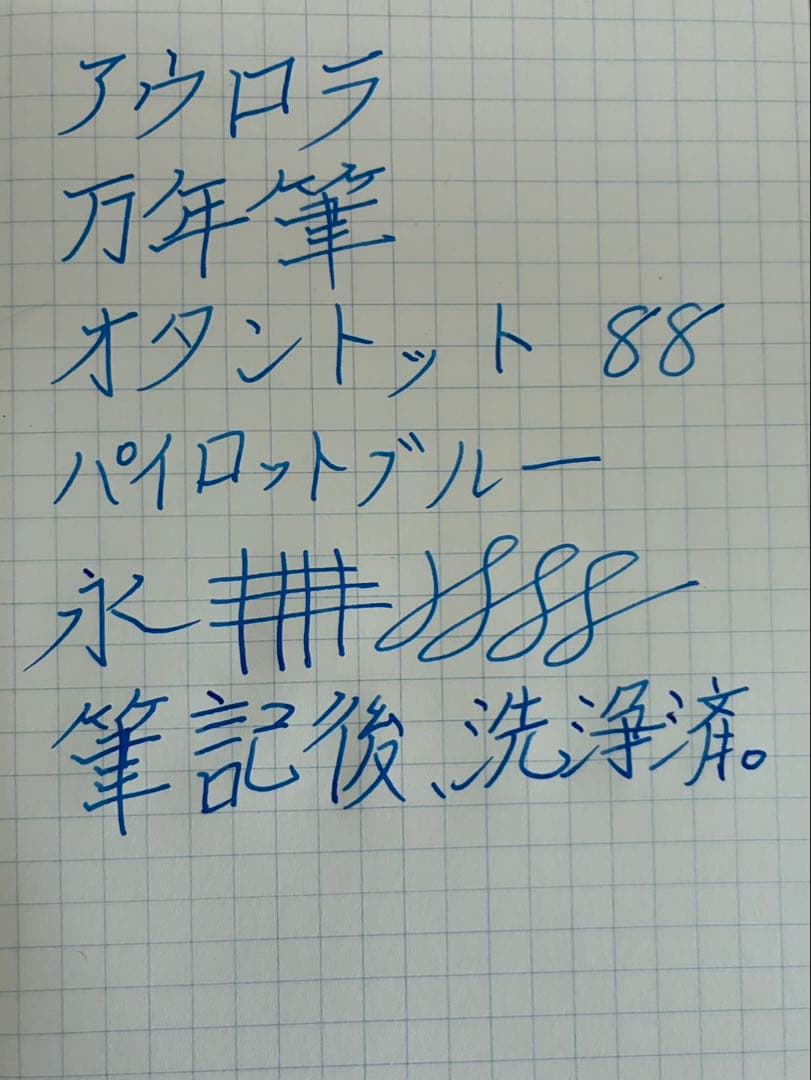 アウロラ
万年筆
オタントット 88
パイロットブルー
永
筆記後、洗浄済。